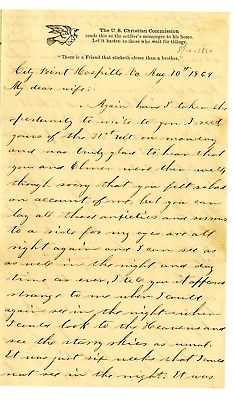 The U. S. Christian Commission
sends this as the soldier's messenger to his home.
Let it hasten to those who wait for tidings.
"There is a Friend that sticketh closer than a brother."
8/10-1864
City Point Hospitle Va Aug 10th 1864
My dear wife:
Again have I taken the
opertunity to write to you I recd
yours of the 31st ult on monday
and was truly glad to hear that
you and Elmer were then well
though sorry that you felt so bad
on account of me, but you can
lay all those anxieties and sorrows
to a side for my eyes are all
right again and I can see as
as well in the night and day
time as ever, I tell you it appeared
strange to me when I could
again see in the night when
I could look to the Heavens and
see the starry skies as usual.
It was just six weeks that I could
not see in the night: It was